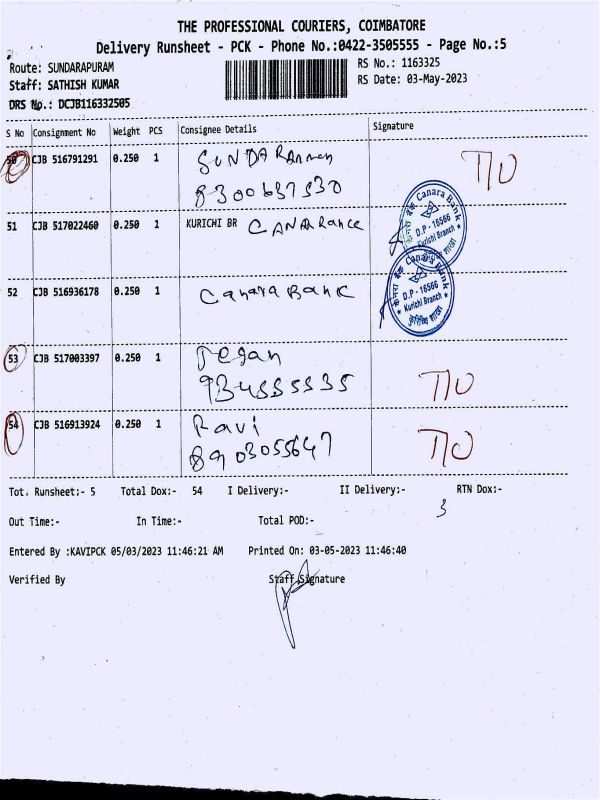 THE PROFESSIONAL COURIERS, COIMBATORE
Delivery Runsheet - PCK - Phone No.:0422-3505555 - Page No.:5
Route: SUNDARAPURAM
RS No.: 1163325
Staff: SATHISH KUMAR
RS Date: 03-May-2023
DRS No.: DCJB116332505
S No Consignment No Weight PCS Consignee Details Signature
50 CJB 516791291 0.250 1
8300637330
T/O
51 CJB 517022460 0.250 1 KURICHI BR
Canara Bank
D.P - 16566
Kurichi Branch
52 CJB 516936178 0.250 1 Canara Bank
Canara Bank
D.P - 16566
Kurichi Branch
53 CJB 517003397 0.250 1 Jegan
T/O
54 CJB 516913924 0.250 1 Ravi
8903055647
T/O
Tot. Runsheet:- 5 Total Dox:- 54 I Delivery:- II Delivery:- RTN Dox:-
3
Out Time:- In Time:- Total POD:-
Entered By :KAVIPCK 05/03/2023 11:46:21 AM Printed On: 03-05-2023 11:46:40
Verified By Staff Signature